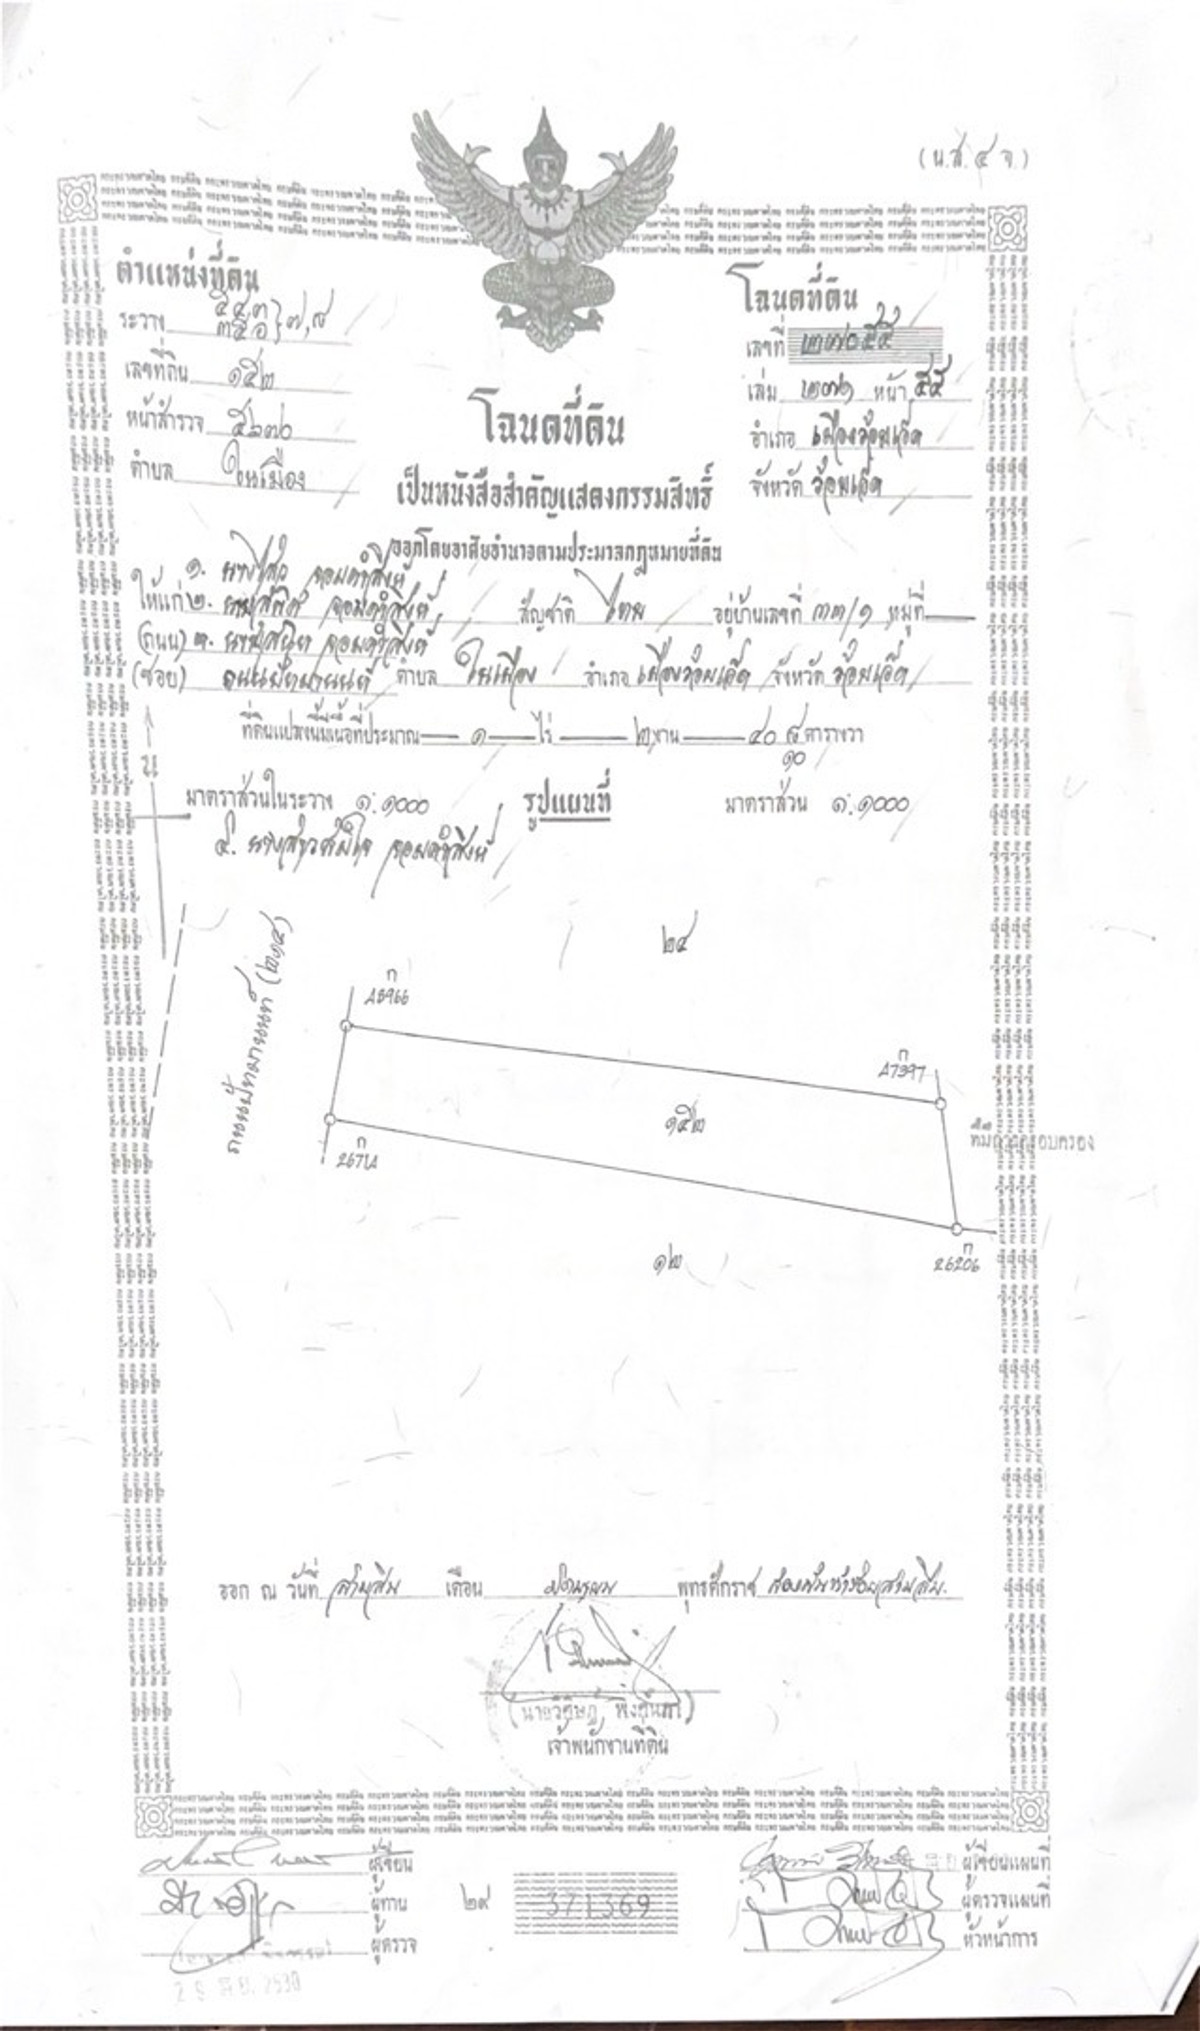 (น.ส. ๔ จ.)
ตำแหน่งที่ดิน
ระวาง ๕๔๓ ๓๕๐ ๗,๘
เลขที่ดิน ๑๕๒
หน้าสำรวจ ๕๖๗๐
ตำบล ในเมือง
โฉนดที่ดิน
เลขที่ ๒๗๐๕๕
เล่ม ๒๗๑ หน้า ๕๕
อำเภอ เมืองร้อยเอ็ด
จังหวัด ร้อยเอ็ด
โฉนดที่ดิน
เป็นหนังสือสำคัญแสดงกรรมสิทธิ์
ออกโดยอาศัยอำนาจตามประมวลกฎหมายที่ดิน
๑. นางไสว จอมคำสิงห์
ให้แก่ ๒. จอมคำสิงห์ สัญชาติ ไทย อยู่บ้านเลขที่ ๓๓/๑ หมู่ที่
(ถนน) ๓. จอมคำสิงห์
(ซอย) ถนนปัทมานนท์ ตำบล ในเมือง อำเภอ เมืองร้อยเอ็ด จังหวัด ร้อยเอ็ด
ที่ดินแปลงนี้มีเนื้อที่ประมาณ ๑ ไร่ ๒ งาน ๔๐ ๘/๑๐ ตารางวา
น
มาตราส่วนในระวาง ๑:๑๐๐๐ รูปแผนที่ มาตราส่วน ๑:๑๐๐๐
๔. นางสาว จอมคำสิงห์
ถนนปัทมานนท์ (๒๑๔)
๒๔
ก
A5966
ก
A7397
๑๕๒
ที่มีการครอบครอง
ก
๑๒
ก
26206
ออก ณ วันที่ สามสิบ เดือน มิถุนายน พุทธศักราช สองพันห้าร้อยสามสิบ
เจ้าพนักงานที่ดิน
ผู้เขียน
ผู้ทาน
ผู้ตรวจ
๒๙
371369
ผู้เขียนแผนที่
ผู้ตรวจแผนที่
หัวหน้าการ
2530